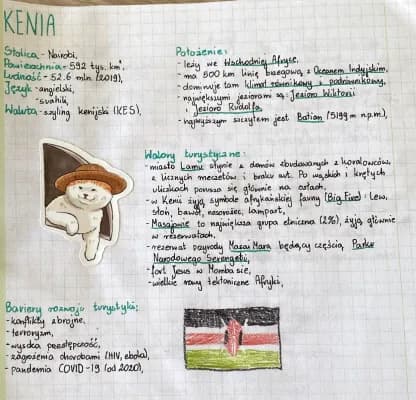 KENIA
Stolica - Nairobi,
Powierzchnia - 592 tys. km²,
Ludność - 52.6 mln. (2019),
Język - angielski,
- suahili,
Waluta - szyling kenijski (KES),
Położenie:
- leży we Wschodniej Afryce,
- ma 500 km linię brzegową z Oceanem Indyjskim,
- dominuje tam klimat równikowy i podrównikowy,
- największymi jeziorami są: Jezioro Wiktorii
Jezioro Rudolfa,
- najwyższym szczytem jest Batian (5199 m n.p.m.),
Walory turystyczne:
- miasto Lamu słynie z domów zbudowanych z koralowców,
z licznych meczetów i braku aut. Po wąskich i krętych
uliczkach porusza się głównie na osłach,
- w Kenii żyją symbole afrykańskiej fauny (Big Five): Lew,
słoń, bawół, nosorożec, lampart,
- Masajowie to największa grupa etniczna (2%), żyją głównie
w rezerwatach,
- rezerwat przyrody Masai Mara będący częścią Parku
Narodowego Serengeti,
- fort Jesus w Mombasie,
- wielkie rowy tektoniczne Afryki,
Bariery rozwoju turystyki:
- konflikty zbrojne,
- terroryzm,
- wysoka przestępczość,
- zagrożenia chorobami (HIV, ebola),
- pandemia COVID-19 (od 2020),